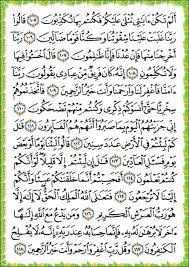 أَلَمْ تَكُنْ ءَايَٰتِى تُتْلَىٰ عَلَيْكُمْ فَكُنتُم بِهَا تُكَذِّبُونَ ١٠٥ قَالُوا۟
رَبَّنَا غَلَبَتْ عَلَيْنَا شِقْوَتُنَا وَكُنَّا قَوْمًا ضَآلِّينَ ١٠٦ رَبَّنَآ
أَخْرِجْنَا مِنْهَا فَإِنْ عُدْنَا فَإِنَّا ظَٰلِمُونَ ١٠٧ قَالَ ٱخْسَـُٔوا۟ فِيهَا
وَلَا تُكَلِّمُونِ ١٠٨ إِنَّهُۥ كَانَ فَرِيقٌ مِّنْ عِبَادِى يَقُولُونَ رَبَّنَآ
ءَامَنَّا فَٱغْفِرْ لَنَا وَٱرْحَمْنَا وَأَنتَ خَيْرُ ٱلرَّٰحِمِينَ ١٠٩ فَٱتَّخَذْتُمُوهُمْ
سِخْرِيًّا حَتَّىٰٓ أَنسَوْكُمْ ذِكْرِى وَكُنتُم مِّنْهُمْ تَضْحَكُونَ ١١٠
إِنِّى جَزَيْتُهُمُ ٱلْيَوْمَ بِمَا صَبَرُوٓا۟ أَنَّهُمْ هُمُ ٱلْفَآئِزُونَ ١١١
قَٰلَ كَمْ لَبِثْتُمْ فِى ٱلْأَرْضِ عَدَدَ سِنِينَ ١١٢ قَالُوا۟ لَبِثْنَا يَوْمًا أَوْ
بَعْضَ يَوْمٍ فَسْـَٔلِ ٱلْعَآدِّينَ ١١٣ قَٰلَ إِن لَّبِثْتُمْ إِلَّا قَلِيلًا لَّوْ أَنَّكُمْ
كُنتُمْ تَعْلَمُونَ ١١٤ أَفَحَسِبْتُمْ أَنَّمَا خَلَقْنَٰكُمْ عَبَثًا وَأَنَّكُمْ
إِلَيْنَا لَا تُرْجَعُونَ ١١٥ فَتَعَٰلَى ٱللَّهُ ٱلْمَلِكُ ٱلْحَقُّ لَآ إِلَٰهَ إِلَّا
هُوَ رَبُّ ٱلْعَرْشِ ٱلْكَرِيمِ ١١٦ وَمَن يَدْعُ مَعَ ٱللَّهِ إِلَٰهًا
ءَاخَرَ لَا بُرْهَٰنَ لَهُۥ بِهِۦ فَإِنَّمَا حِسَابُهُۥ عِندَ رَبِّهِۦٓ إِنَّهُۥ لَا يُفْلِحُ
ٱلْكَٰفِرُونَ ١١٧ وَقُل رَّبِّ ٱغْفِرْ وَٱرْحَمْ وَأَنتَ خَيْرُ ٱلرَّٰحِمِينَ ١١٨